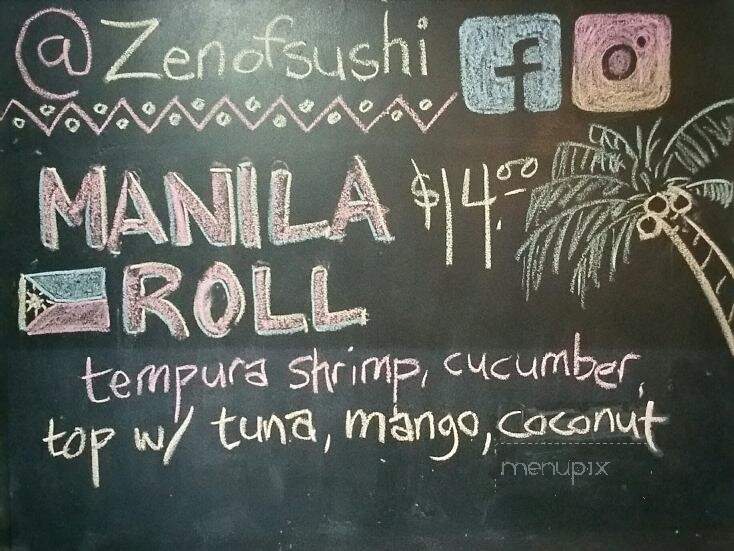 @Zenofsushi f
MANILA $14.00
ROLL
tempura shrimp, cucumber,
top w/ tuna, mango, coconut
menupix